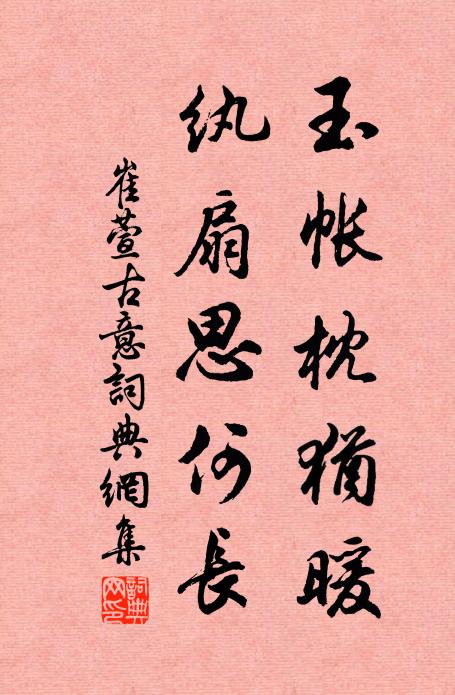 玉帐枕猶暖
纨扇思何長
崔萱古意詞典網集
詞典網印